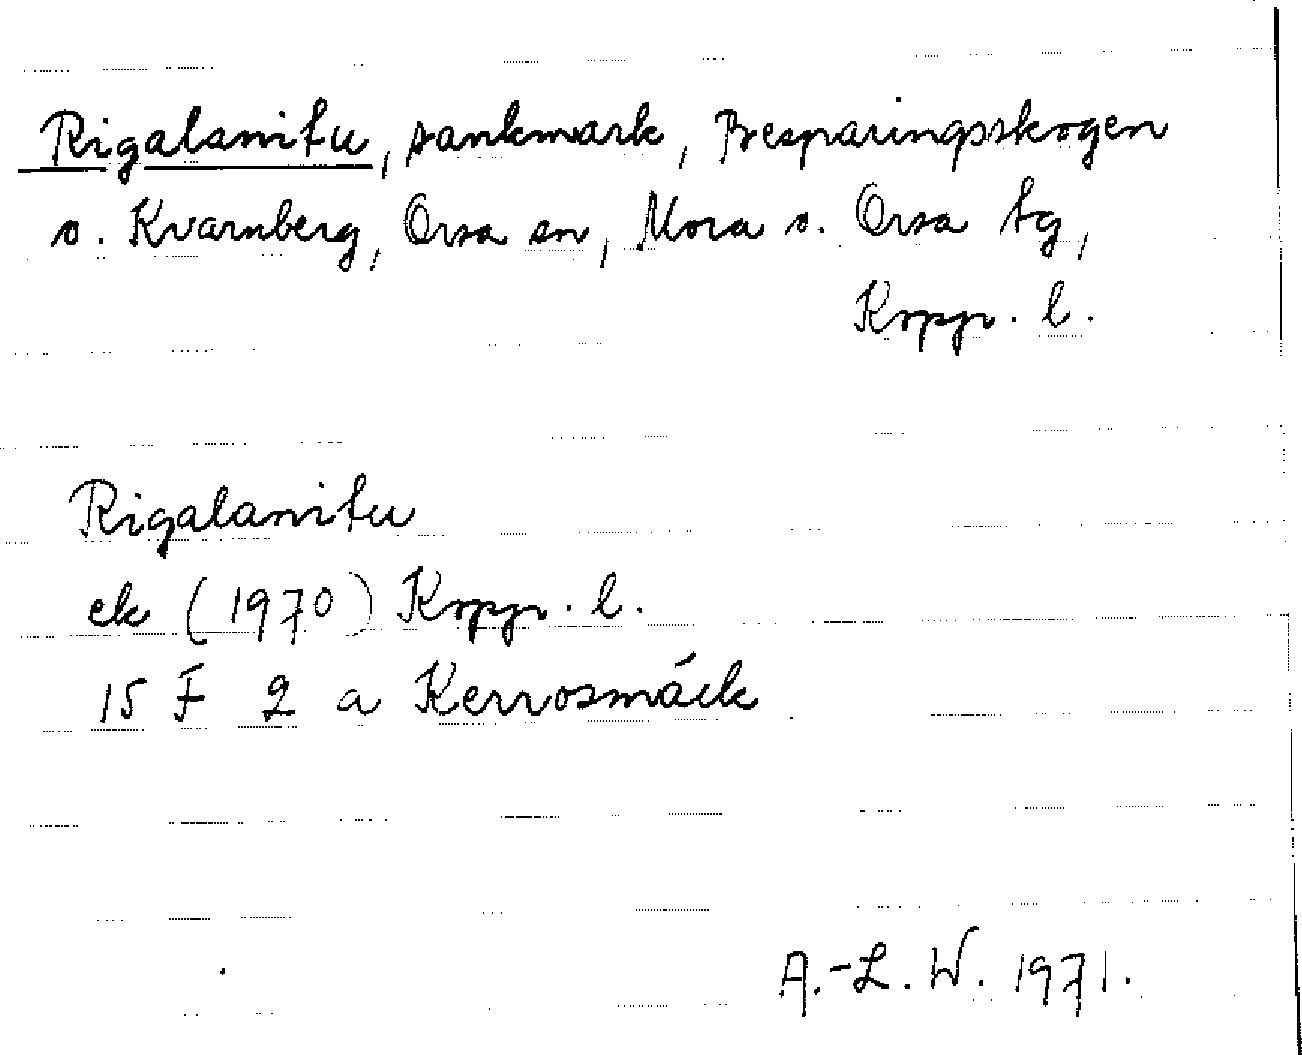 Rigalanitu, sankmark, Besparingsskogen
o. Kvarnberg, Orsa sn, Mora o. Orsa tg,
Kopp. l.
Rigalanitu
ek (1970) Kopp. l.
15 F 2 a Kerrosmäck
A.-L. W. 1971.